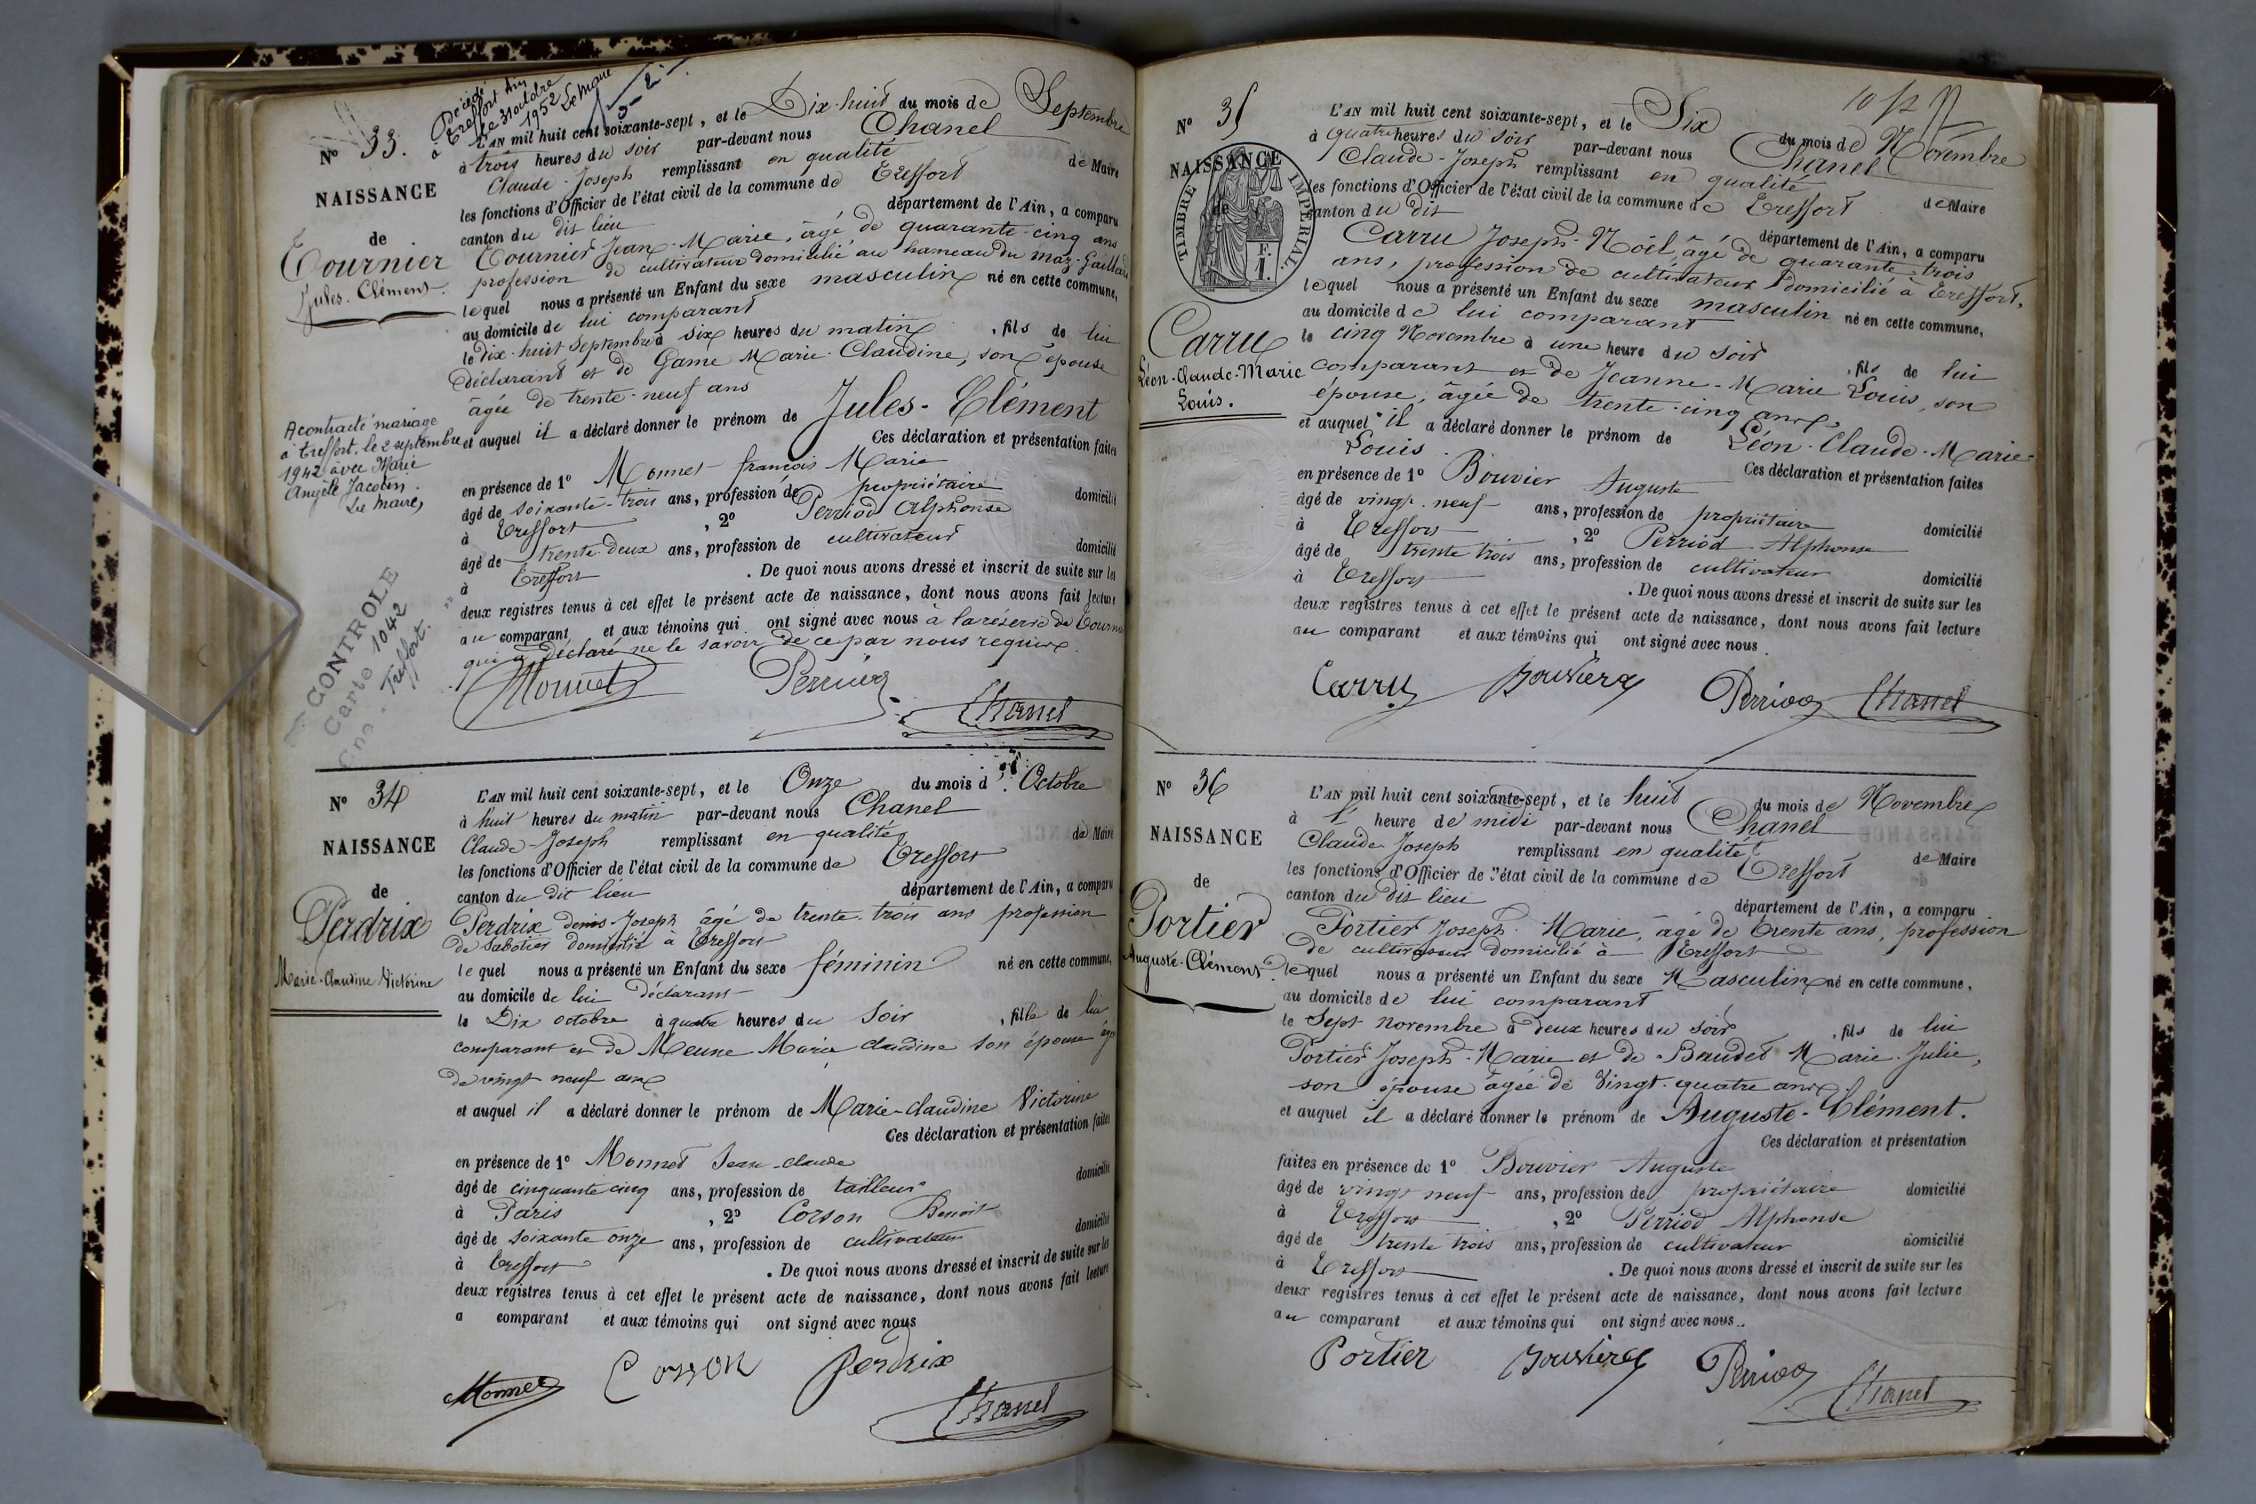 Décédé
à Treffort Ain
le 31 octobre
1952 Le Maire
N° 33.
NAISSANCE
de
Tournier
Jules-Clément.
L'AN mil huit cent soixante-sept, et le Dix-huit du mois de Septembre
à trois heures du soir par-devant nous Chanel
Claude-Joseph remplissant en qualité de Maire
les fonctions d'Officier de l'état civil de la commune de Treffort
canton du dit lieu département de l'Ain, a comparu
Tournier Jean-Marie, âgé de quarante-cinq ans
profession de cultivateur domicilié au hameau du Maz-Gaillard
lequel nous a présenté un Enfant du sexe masculin né en cette commune,
au domicile de lui comparant
le dix-huit Septembre à six heures du matin, fils de lui
déclarant et de Game Marie-Claudine, son épouse
âgée de trente-neuf ans
et auquel il a déclaré donner le prénom de Jules-Clément
Ces déclaration et présentation faites
en présence de 1° Monnet françois Marie
âgé de soixante-trois ans, profession de propriétaire domicilié
à Treffort, 2° Perriod Alphonse
âgé de trente-deux ans, profession de cultivateur domicilié
à Treffort. De quoi nous avons dressé et inscrit de suite sur les
deux registres tenus à cet effet le présent acte de naissance, dont nous avons fait lecture
au comparant et aux témoins qui ont signé avec nous à la réserve de Tournier
qui a déclaré ne le savoir de ce par nous requis.
Monnet Perriod
Chanel
A contracté mariage
à Treffort, le 2 septembre
1942 avec Marie
Angèle Jacolin.
Le maire,
CONTROLE
Carte 1042
Cne. Treffort.
N° 34
NAISSANCE
de
Perdrix
Marie-Claudine Victorine
L'AN mil huit cent soixante-sept, et le Onze du mois d'Octobre
à huit heures du matin par-devant nous Chanel
Claude-Joseph remplissant en qualité de Maire
les fonctions d'Officier de l'état civil de la commune de Treffort
canton du dit lieu département de l'Ain, a comparu
Perdrix denis Joseph âgé de trente-trois ans profession
de sabotier domicilié à Treffort
lequel nous a présenté un Enfant du sexe féminin né en cette commune,
au domicile de lui déclarant
le Dix octobre à quatre heures du soir, fille de lui
comparant et de Meune Marie claudine son épouse âgée
de vingt neuf ans
et auquel il a déclaré donner le prénom de Marie-claudine Victorine
Ces déclaration et présentation faites
en présence de 1° Monnet Jean-claude
âgé de cinquante cinq ans, profession de tailleur domicilié
à Paris, 2° Corson Benoit
âgé de soixante onze ans, profession de cultivateur domicilié
à Treffort. De quoi nous avons dressé et inscrit de suite sur les
deux registres tenus à cet effet le présent acte de naissance, dont nous avons fait lecture
a comparant et aux témoins qui ont signé avec nous
Monnet Corson Perdrix
Chanel
10/12
N° 35
NAISSANCE
de
TIMBRE IMPÉRIAL.
F.
1.
Carru
Léon-Claude-Marie
Louis.
L'AN mil huit cent soixante-sept, et le Six du mois de Novembre
à quatre heures du soir par-devant nous Chanel
Claude-Joseph remplissant en qualité de Maire
les fonctions d'Officier de l'état civil de la commune de Treffort
canton du dit département de l'Ain, a comparu
Carru Joseph-Noël, âgé de quarante-trois
ans, profession de cultivateur domicilié à Treffort,
lequel nous a présenté un Enfant du sexe masculin né en cette commune,
au domicile de lui comparant
le cinq Novembre à une heure du soir, fils de lui
comparant et de Jeanne-Marie Louis, son
épouse, âgée de trente-cinq ans,
et auquel il a déclaré donner le prénom de Léon-Claude-Marie
Louis. Ces déclaration et présentation faites
en présence de 1° Bouvier Auguste
âgé de vingt-neuf ans, profession de propriétaire domicilié
à Treffort, 2° Perriod Alphonse
âgé de trente trois ans, profession de cultivateur domicilié
à Treffort. De quoi nous avons dressé et inscrit de suite sur les
deux registres tenus à cet effet le présent acte de naissance, dont nous avons fait lecture
au comparant et aux témoins qui ont signé avec nous.
Carru Bouvier Perriod Chanel
N° 36
NAISSANCE
de
Portier
Auguste-Clément.
L'AN mil huit cent soixante-sept, et le huit du mois de Novembre
à 1 heure de midi par-devant nous Chanel
Claude Joseph remplissant en qualité de Maire
les fonctions d'Officier de l'état civil de la commune de Treffort
canton du dit lieu département de l'Ain, a comparu
Portier Joseph-Marie, âgé de trente ans, profession
de cultivateur domicilié à Treffort
lequel nous a présenté un Enfant du sexe Masculin né en cette commune,
au domicile de lui comparant
le Sept novembre à deux heures du soir, fils de lui
Portier Joseph-Marie et de Baudet Marie-Julie,
son épouse âgée de Vingt-quatre ans.
et auquel il a déclaré donner le prénom de Auguste-Clément.
Ces déclaration et présentation
faites en présence de 1° Bouvier Auguste
âgé de vingt neuf ans, profession de propriétaire domicilié
à Treffort, 2° Perriod Alphonse
âgé de trente trois ans, profession de cultivateur domicilié
à Treffort. De quoi nous avons dressé et inscrit de suite sur les
deux registres tenus à cet effet le présent acte de naissance, dont nous avons fait lecture
au comparant et aux témoins qui ont signé avec nous.
Portier Bouvier Perriod Chanel